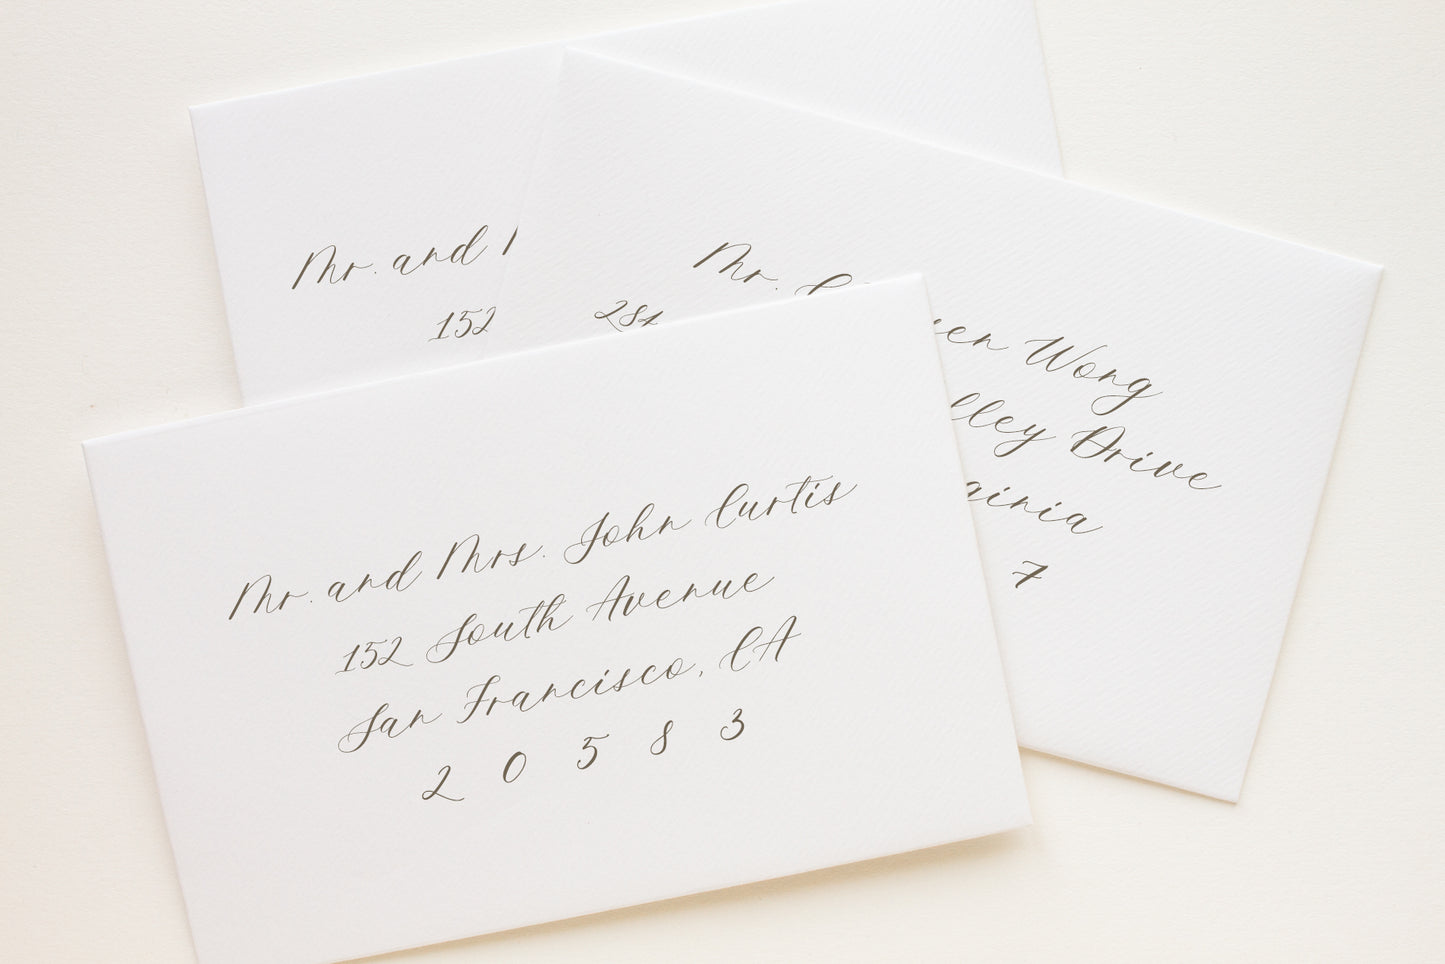 Mr. and
152
Mr.
Wong
Drive
7
Mr. and Mrs. John Curtis
152 South Avenue
San Francisco, CA
2 0 5 8 3